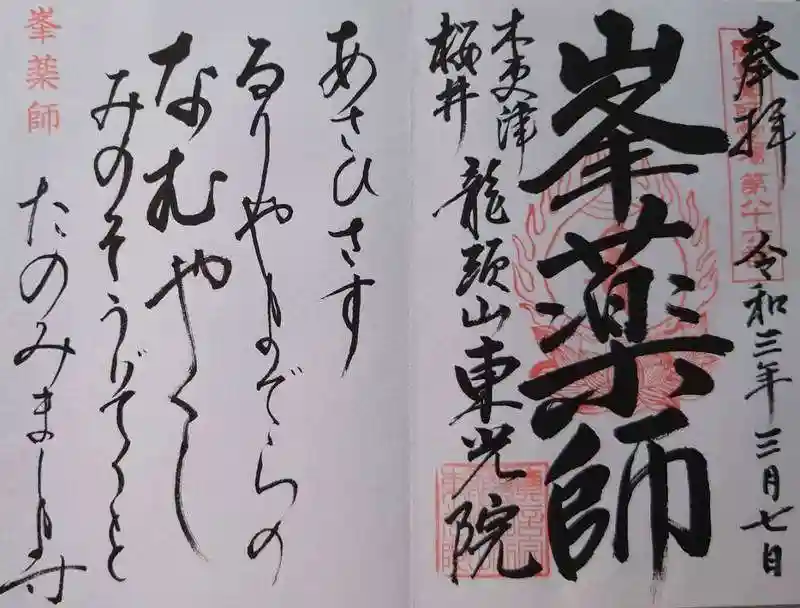 奉拝
令和三年三月七日
峯薬師
木更津
桜井
龍頭山東光院
あさひさす
るりやまのでらの
なむやくし
みのそうぢてうと
たのみまし
峯薬師